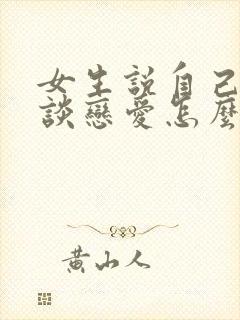 女生説自己
談戀愛怎麼
黃山人